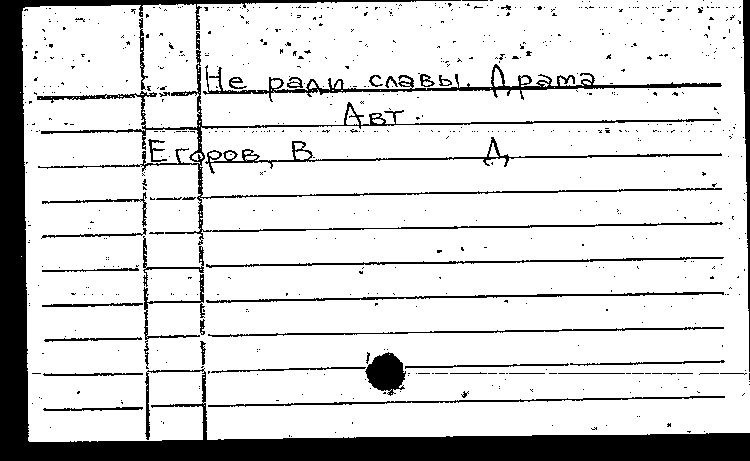 Не ради славы. Драма
Авт.
Егоров, В Д